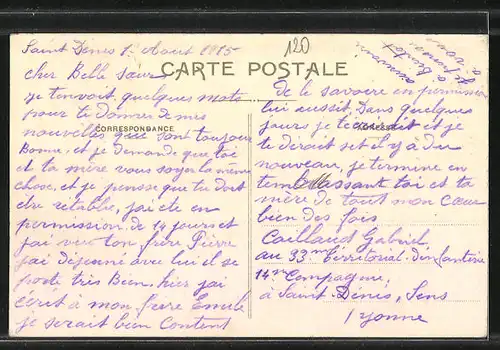 Saint Denis 1r Aout 1915
120
CARTE POSTALE
CORRESPONDANCE
cher Belle Sœur
je tenvoit quelques mots
pour te donner de mes
nouvelles que sont toujour
Bonne, et je demande que toi
et ta mère vous soyer la meme
chose, et je pensse que tu doit
etre retablie, j'ai ete en
permission de 14 jours et
j'ai veu ton frère Pierre
j'ai dejeuné avec lui il se
porte très Bien, hier j'ai
écrit à mon frère Emile
je serait bien Content
de le savoire en permission
lui aussit. Dans quelques
jours je et je
te dirait set il y a du
nouveau, je termine en
tembrassant toi et ta
mère de tout mon Cœur
bien des fois
Caillaud Gabriel,
au 33me territorial d'infanterie
14me Compagnie,
à Saint-Dénis, Sens
Yonne